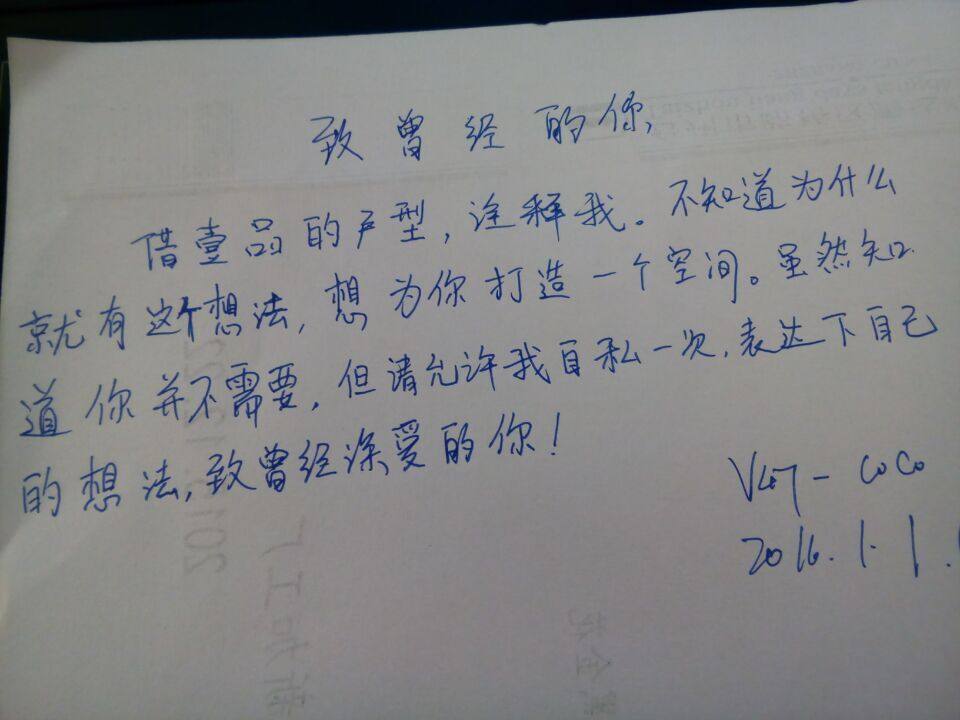 致曾经的你,
借壹品的户型,诠释我。不知道为什么
就有这个想法,想为你打造一个空间。虽然知
道你并不需要,但请允许我自私一次,表达下自己
的想法,致曾经深爱的你!
V47-COCO
2016.1.1.